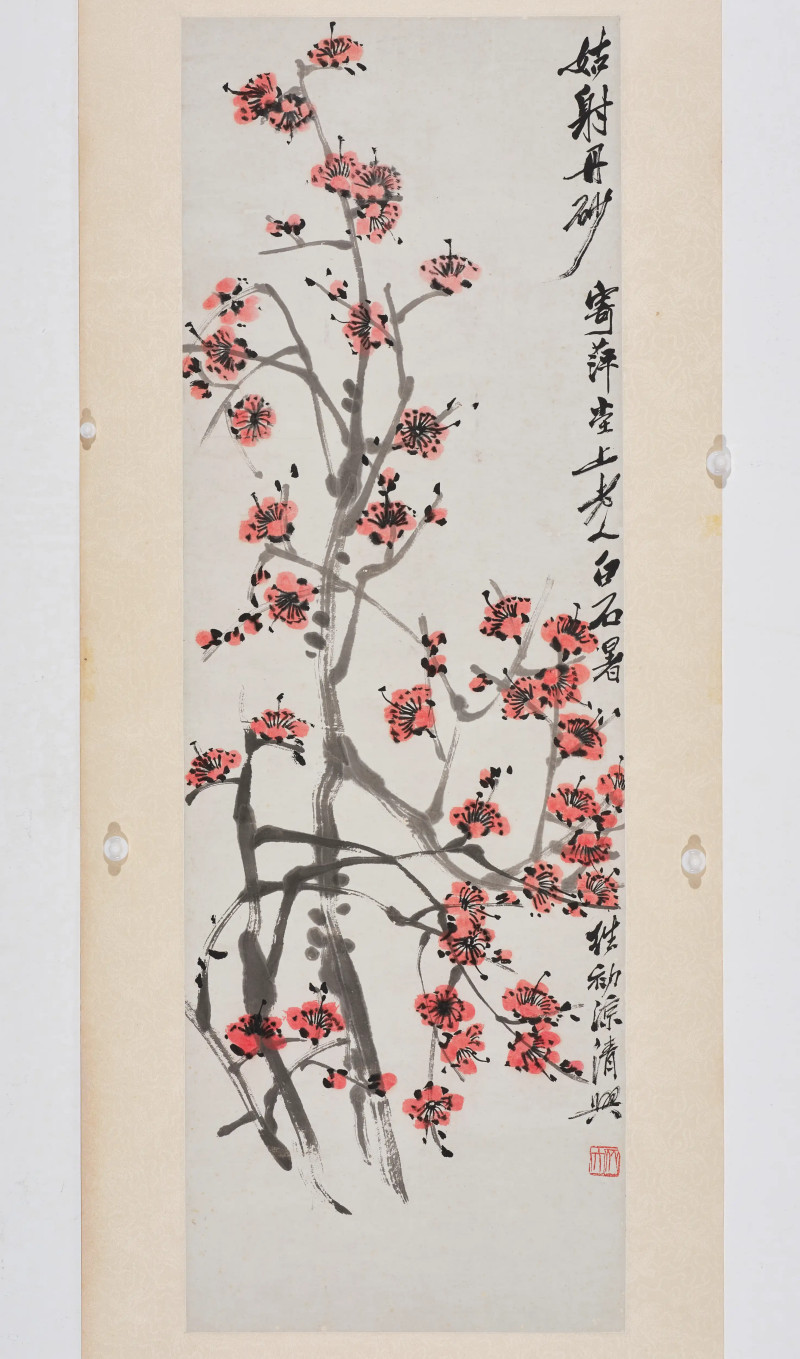 姑射丹砂
寄萍堂上老人白石暑
初涼清興